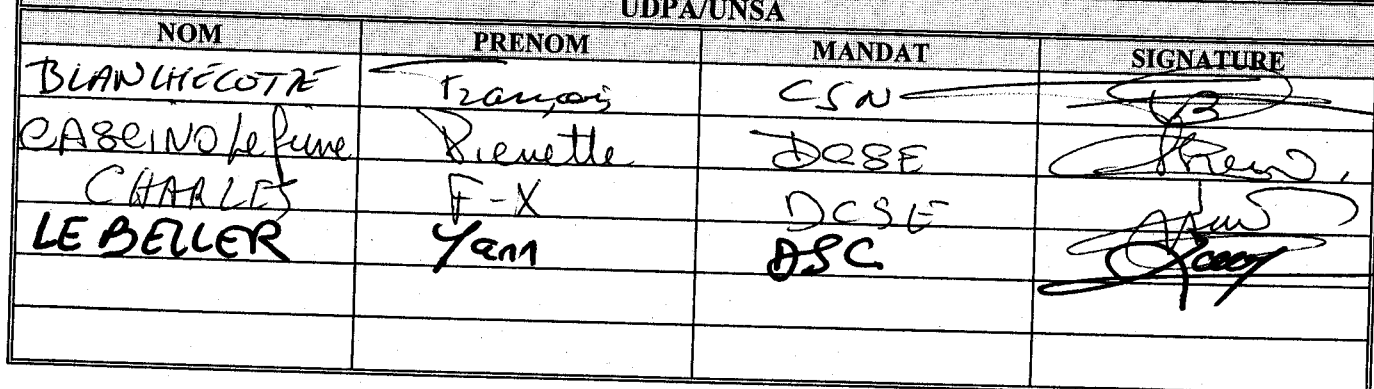 UDPA/UNSA
NOM PRENOM MANDAT SIGNATURE
BLANCHÉCOTTE François CSN
CASCINO Lejeune Pierrette DCSE
CHARLES F-X DCSE
LE BELLER Yann DSC